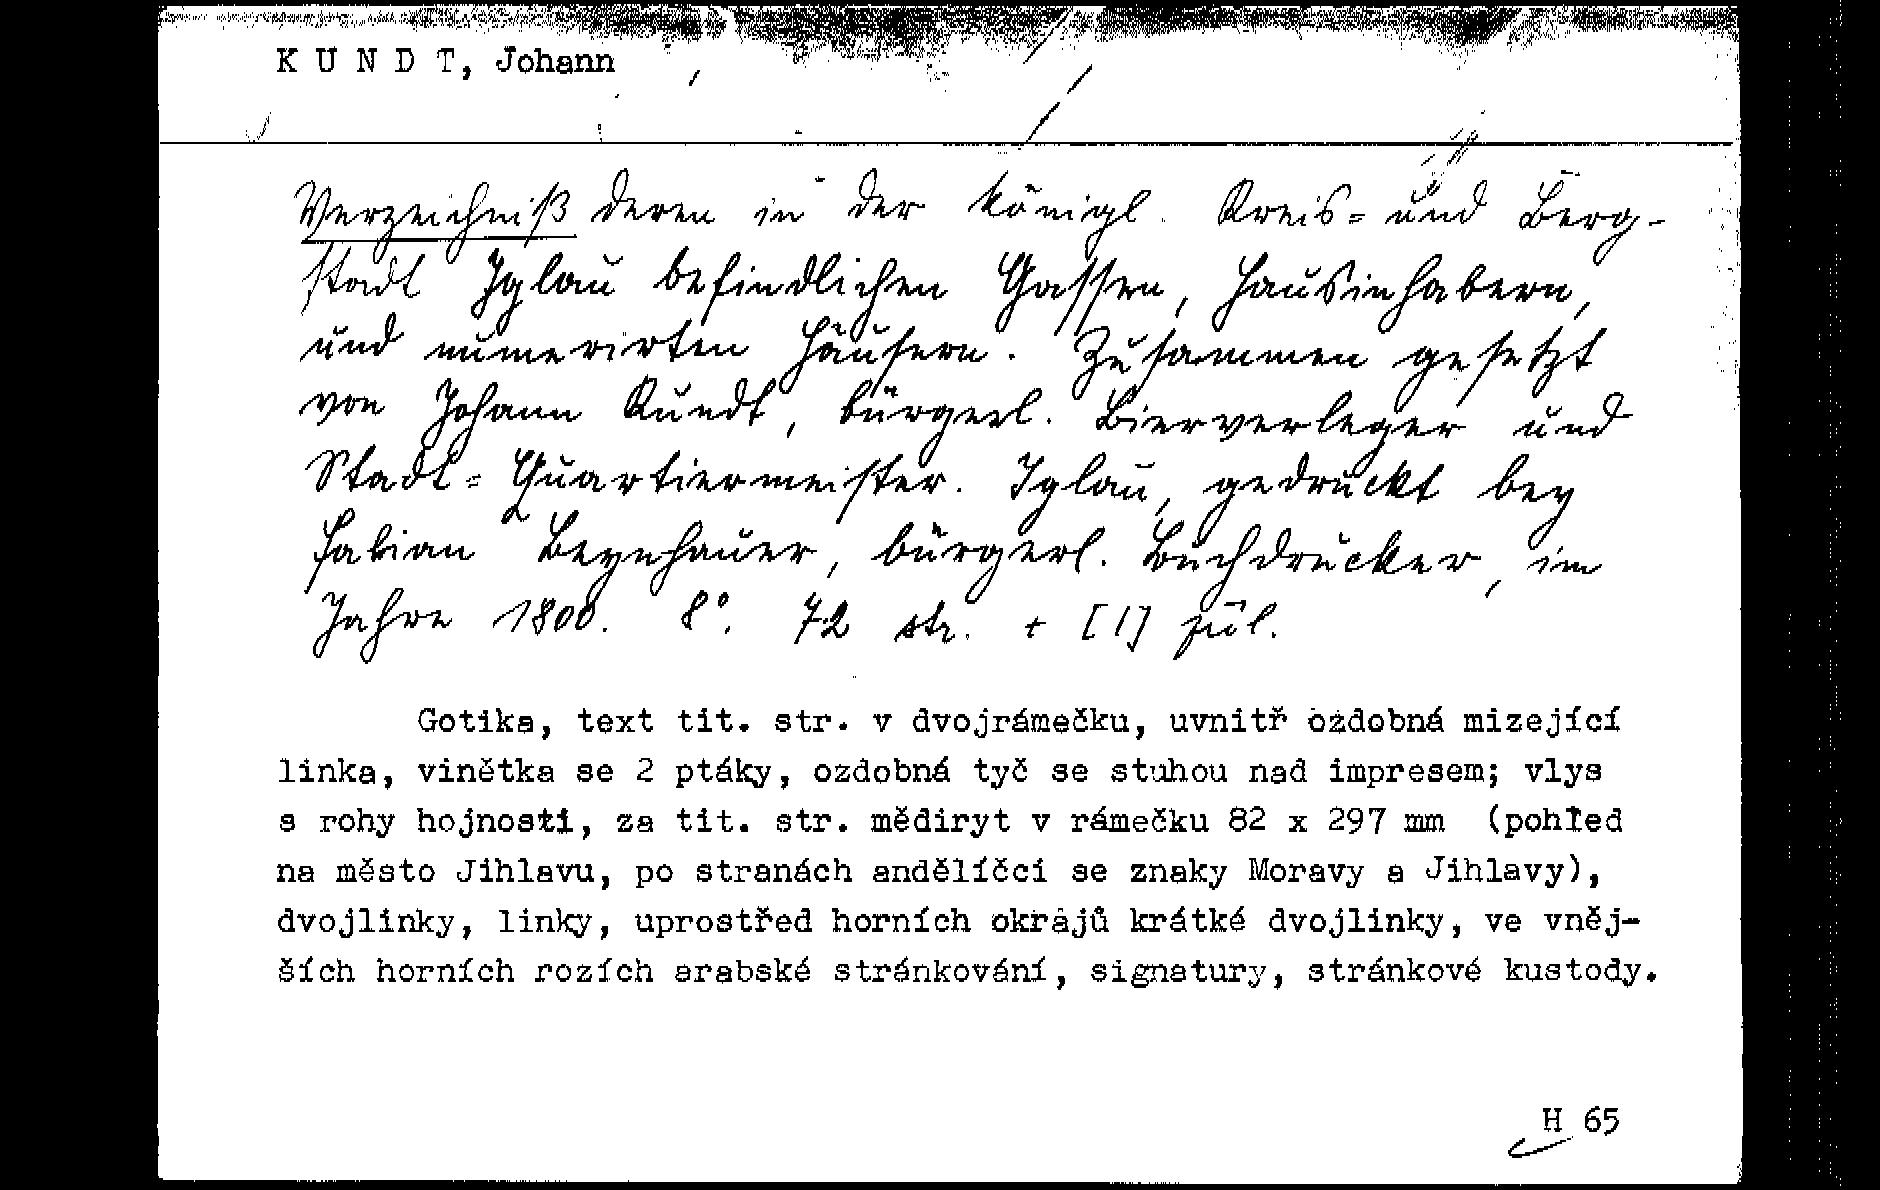 K U N D T, Johann
Verzeichniß deren in der königl. Kreis= und Berg-
stadt Iglau befindlichen Gassen, Hausinhabern,
und numerirten Häusern. Zusammen gesetzt
von Johann Kundt, bürgerl. Bierverleger und
Stadt=Quartiermeister. Iglau, gedruckt bey
Fabian Beynhauer, bürgerl. Buchdrucker, im
Jahre 1800. 8°. 72 str. + [1] příl.
Gotika, text tit. str. v dvojrámečku, uvnitř ozdobná mizející
linka, vinětka se 2 ptáky, ozdobná tyč se stuhou nad impresem; vlys
s rohy hojnosti, za tit. str. mědiryt v rámečku 82 x 297 mm (pohled
na město Jihlavu, po stranách andělíčci se znaky Moravy a Jihlavy),
dvojlinky, linky, uprostřed horních okrajů krátké dvojlinky, ve vněj-
ších horních rozích arabské stránkování, signatury, stránkové kustody.
H 65